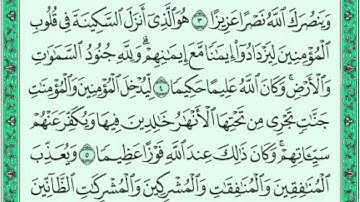 وَيَنصُرَكَ ٱللَّهُ نَصْرًا عَزِيزًا ٣ هُوَ ٱلَّذِىٓ أَنزَلَ ٱلسَّكِينَةَ فِى قُلُوبِ
ٱلْمُؤْمِنِينَ لِيَزْدَادُوٓا۟ إِيمَـٰنًا مَّعَ إِيمَـٰنِهِمْ ۗ وَلِلَّهِ جُنُودُ ٱلسَّمَـٰوَٰتِ
وَٱلْأَرْضِ ۚ وَكَانَ ٱللَّهُ عَلِيمًا حَكِيمًا ٤ لِّيُدْخِلَ ٱلْمُؤْمِنِينَ وَٱلْمُؤْمِنَـٰتِ
جَنَّـٰتٍ تَجْرِى مِن تَحْتِهَا ٱلْأَنْهَـٰرُ خَـٰلِدِينَ فِيهَا وَيُكَفِّرَ عَنْهُمْ
سَيِّـَٔاتِهِمْ ۚ وَكَانَ ذَٰلِكَ عِندَ ٱللَّهِ فَوْزًا عَظِيمًا ٥ وَيُعَذِّبَ
ٱلْمُنَـٰفِقِينَ وَٱلْمُنَـٰفِقَـٰتِ وَٱلْمُشْرِكِينَ وَٱلْمُشْرِكَـٰتِ ٱلظَّآنِّينَ